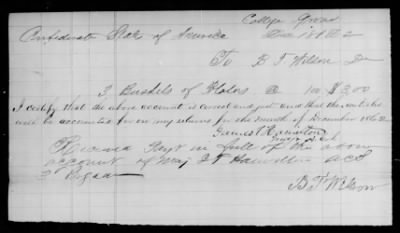 College Grove
Confederate States of America Dec 18 1862
To B F Wilson Dr
3 Bushels of Potatos @ 100 $3.00
I certify that the above account is correct and just and that the articles
will be accounted for on my returns for the month of December 1862
James Hamilton
Received Payt in full of the above
account of Maj Hamilton ACS
B F Wilson